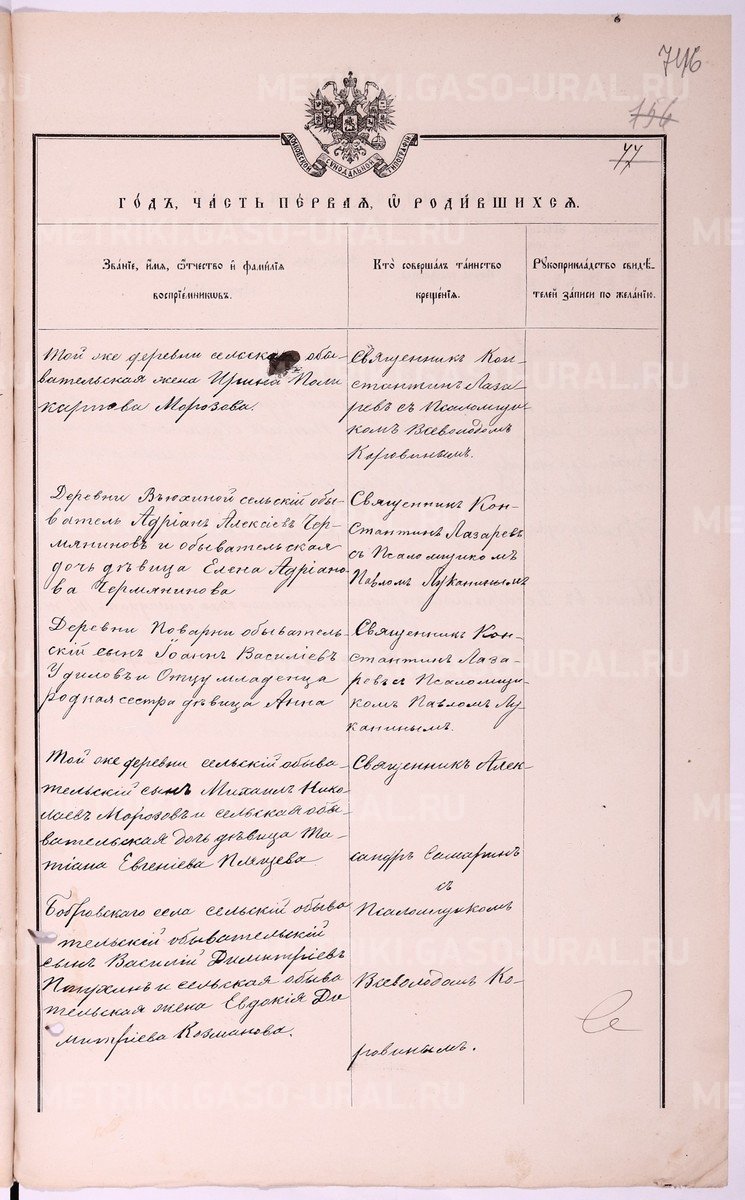 746
756
77
МОСКОВСКОЙ СѴНОДАЛЬНОЙ ТИПОГРАФІИ
ГОДЪ, ЧАСТЬ ПЕРВАЯ, Ѿ РОДИВШИХСЯ.
Званіе, имя, отчество и фамилія
воспріемниковъ.
Кто совершалъ таинство
крещенія.
Рукоприкладство свидѣ-
телей записи по желанію.
Той же деревни сельская обы-
вательская жена Ирина Поли
карпова Морозова.
Священникъ Кон-
стантинъ Лаза
ревъ съ Псаломщи-
комъ Всеволодомъ
Коровинымъ.
Деревни Вьюхиной сельскій обы-
ватель Адріанъ Алексіевъ Чер-
мяниновъ и обывательская
дочь дѣвица Елена Адріано-
ва Чермянинова
Священникъ Кон-
стантинъ Лазаревъ
съ Псаломщикомъ
Павломъ Луканинымъ
Деревни Поварни обыватель-
скій сынъ Іоаннъ Василіевъ
Удиловъ и Отцу младенца
родная сестра дѣвица Анна
Священникъ Кон-
стантинъ Лаза-
ревъ съ Псаломщи-
комъ Павломъ Лу-
канинымъ.
Той же деревни сельскій обыва-
тельскій сынъ Михаилъ Нико
лаевъ Морозовъ и сельская обы-
вательская дочь дѣвица Та-
тіана Евгеніева Плящева
Священникъ Алек
сандръ Самаринъ
съ
Псаломщикомъ
Всеволодомъ Ко-
ровинымъ.
Бобровскаго села сельскій обыва
тельскій обывательскій
сынъ Василій Димитріевъ
и сельская обыва
тельская жена Евдокія Ди
митріева Козманова.
METRIKI.GASO-URAL.RU